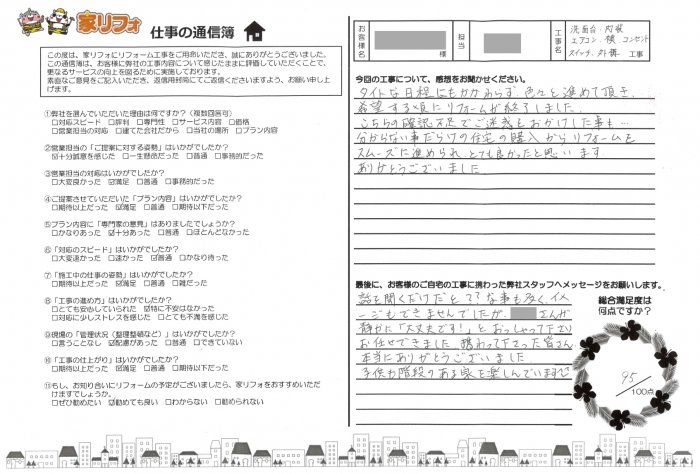 家リフォ 仕事の通信簿
この度は、家リフォにリフォーム工事をご用命いただき、誠にありがとうございました。
この通信簿は、お客様に弊社の工事内容について感じたままに評価していただくことで、
更なるサービスの向上を図るために実施しております。
素直なご意見をご記入いただき、返信用封筒にてご返信くださいますよう、お願い申し上
げます。
①弊社を選んでいただいた理由は何ですか?(複数回答可)
□対応スピード □評判 □専門性 □サービス内容 □価格
□営業担当の対応 □建てた会社だから □当社の場所 □プラン内容
②営業担当の「ご提案に対する姿勢」はいかがでしたか?
☑十分誠意を感じた □一生懸命だった □普通 □事務的だった
③営業担当の対応はいかがでしたか?
□大変良かった ☑満足 □普通 □事務的だった
④ご提案させていただいた「プラン内容」はいかがでしたか?
□期待以上だった ☑満足 □普通 □期待以下だった
⑤プラン内容に「専門家の意見」はありましたでしょうか?
□かなりあった ☑十分あった □普通 □ほとんどなかった
⑥「対応のスピード」はいかがでしたか?
□大変速かった ☑速かった □普通 □かなり待った
⑦「施工中の仕事の姿勢」はいかがでしたか?
□期待以上だった ☑満足 □普通 □雑だった
⑧「工事の進め方」はいかがでしたか?
□とても安心していられた ☑特に不安はなかった
□対応に少しストレスを感じた □とても不満を感じた
⑨現場の「管理状況(整理整頓など)」はいかがでしたか?
□言うことなし ☑配慮があった □普通 □できていない
⑩「工事の仕上がり」はいかがでしたか?
□期待以上だった ☑満足 □普通 □期待以下だった
⑪もし、お知り合いにリフォームの予定がございましたら、家リフォをおすすめいただ
けますでしょうか。
□ぜひ勧めたい ☑勧めても良い □わからない □勧められない
お客様名
担当
工事名
洗面台・内装
エアコン・襖 コンセント
スイッチ、外構 工事
今回の工事について、感想をお聞かせください。
タイトな日程にもかかわらず 色々と進めて頂き、
希望する頃にリフォームが終了しました。
こちらの確認不足でご迷惑をおかけした事も…
分からない事だらけの住宅の購入からリフォームを
スムーズに進められ、とても良かったと思います
ありがとうございました
最後に、お客様のご自宅の工事に携わった弊社スタッフへメッセージをお願いします。
話を聞くだけだと??な事も多く、イメ
ージもできませんでしたが、 さんが
静かに「大丈夫です!」とおっしゃって下さり
お任せできました。携わって下さった皆さん
本当にありがとうございました
子供も階段のある家を楽しんでいます
総合満足度は
何点ですか?
95
/100点